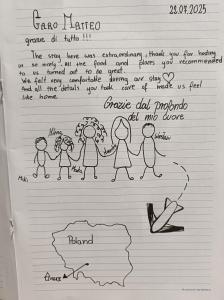 28.07.2025
CARO MATTEO
grazie di tutto !!!
The stay here was extraordinary, thank you for hosting
us so nicely. All the food and places you recommended
to us turned out to be great.
We felt very comfortable during our stay
And all the details you took care of made us feel
like home.
Grazie dal profondo
del mio cuore
Poland